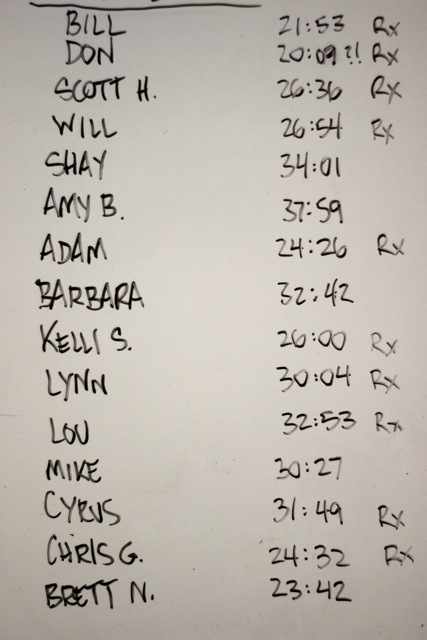 BILL 21:53 Rx
DON 20:09?! Rx
SCOTT H. 26:36 Rx
WILL 26:54 Rx
SHAY 34:01
AMY B. 37:59
ADAM 24:26 Rx
BARBARA 32:42
KELLI S. 26:00 Rx
LYNN 30:04 Rx
LOU 32:53 Rx
MIKE 30:27
CYRUS 31:49 Rx
CHRIS G. 24:32 Rx
BRETT N. 23:42